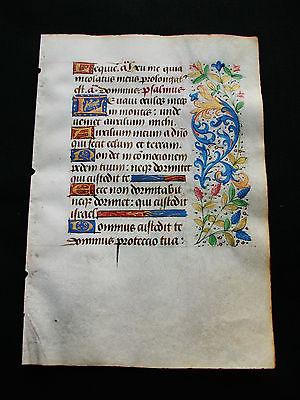 Hequie. A Xu me quia
incolatus meus prolongat᷒
est. a Dominus psalmus
Leuavi oculos meos
in montes: unde
veniet auxilium michi.
Auxilium meum a dño
qui fecit celum et terram.
Non det in comocionem
pedem tuum: neqƺ dormitet
qui custodit te
Ecce non dormitabit
neqƺ dormiet: qui custodit
israel
Dominus custodit te
dominus proteccio tua: